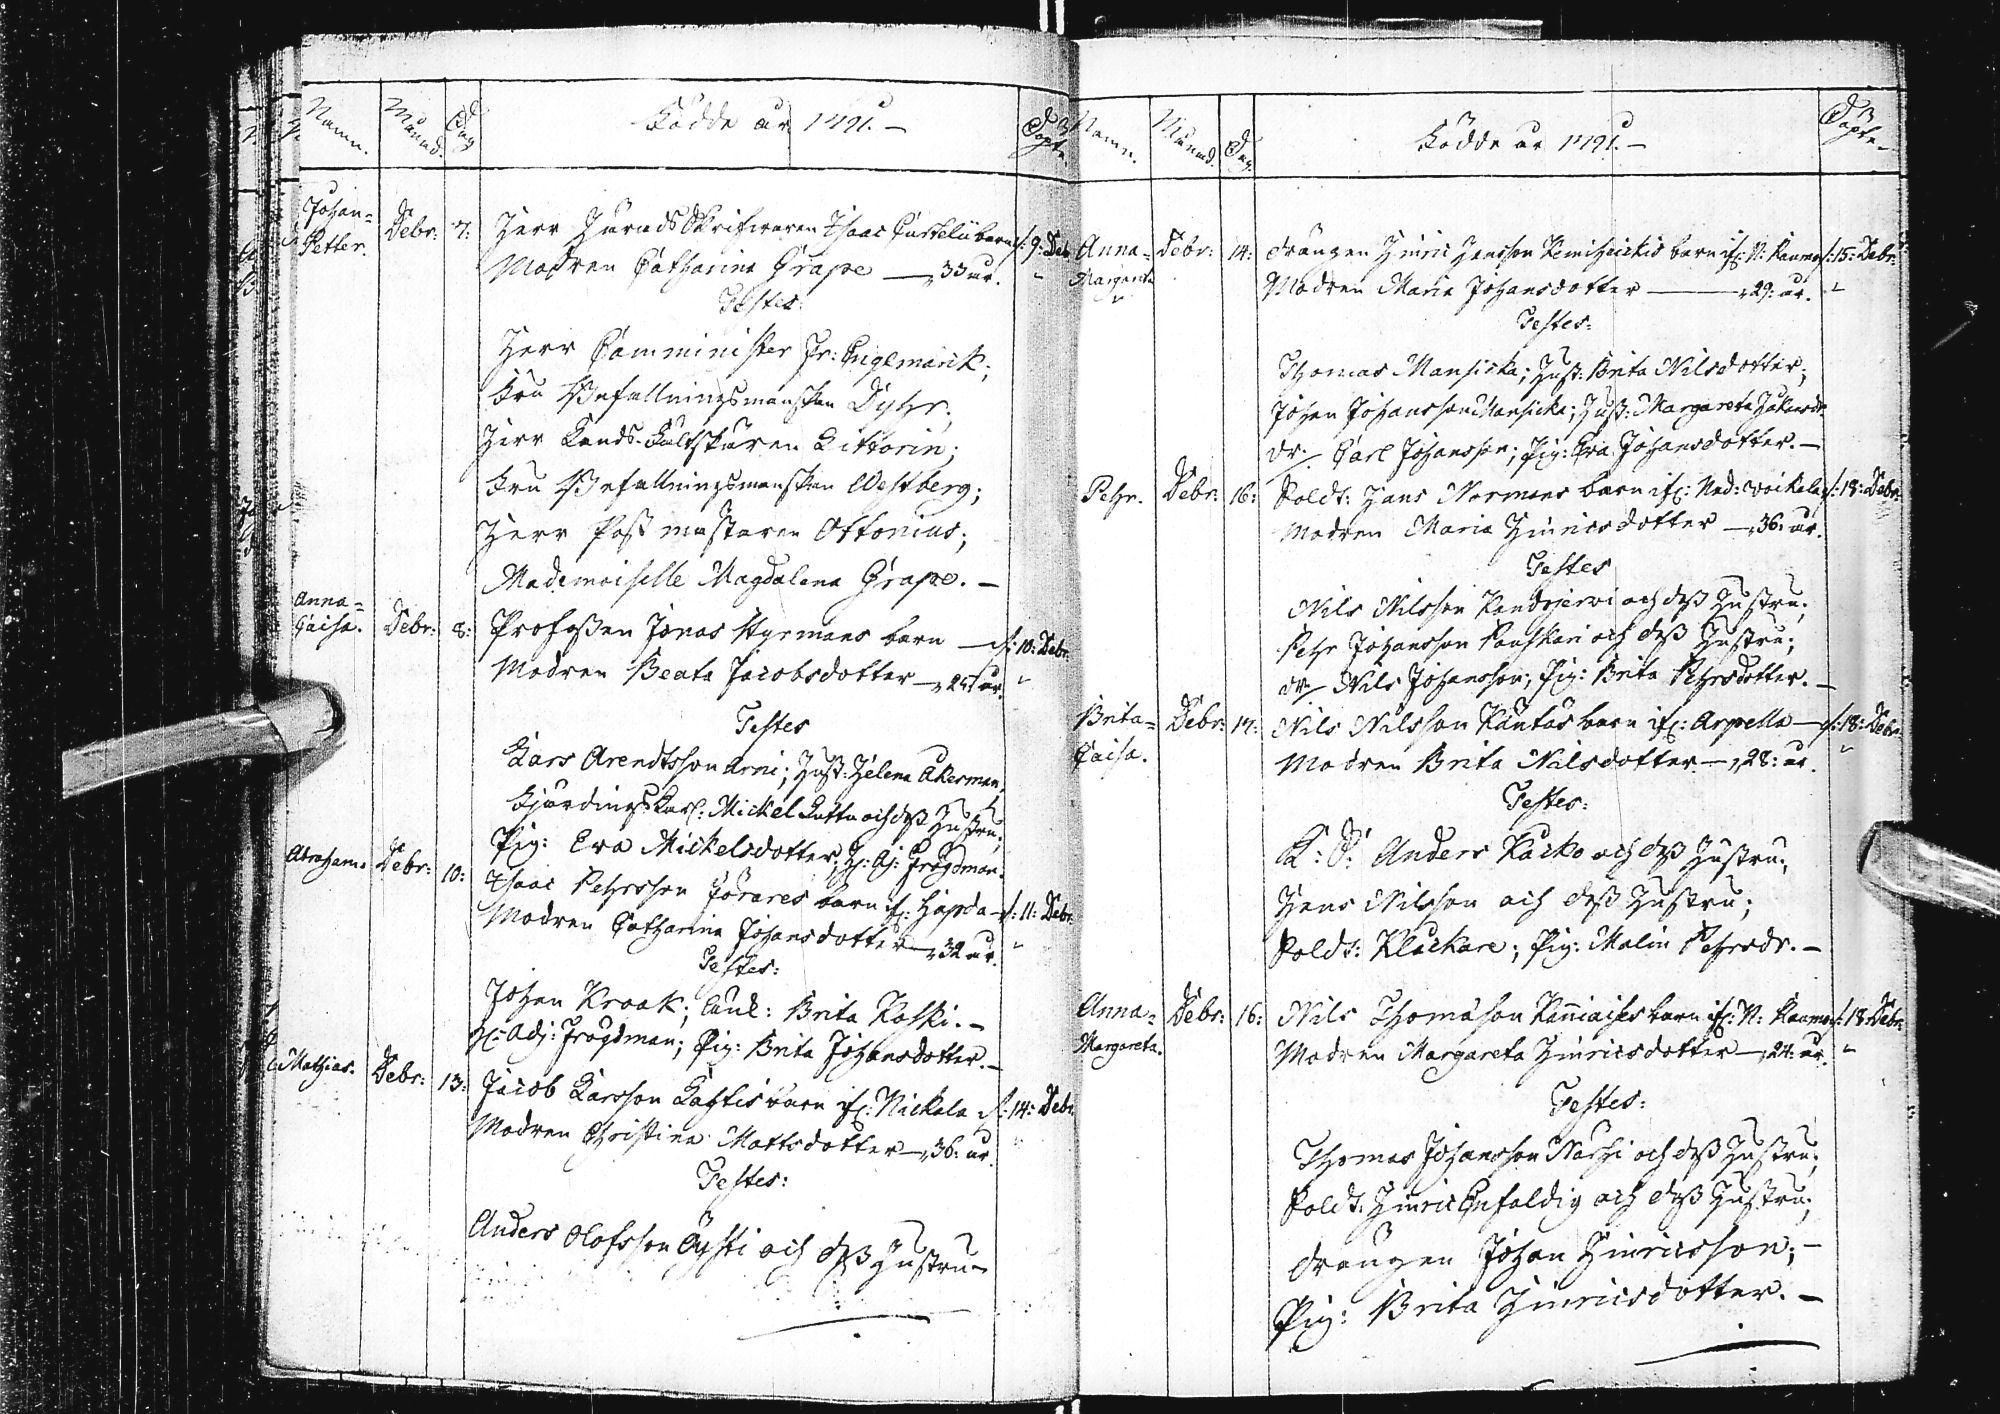 Namn. Månad. Dag Födde år 1791. — Döpte.
Johan= Petter. Decbr: 7: Herr Häradsskrifvaren Isaac Curtelii barn d: 9: Deb
Modren Catharina Grape — 33 år.
Testes:
Herr Comminister Jr: Engelmarck;
Fru Befallningsmanskan Dyhr.
Herr Lands-Fältskären Littorin;
Fru Befallningsmanskan Westberg;
Herr Postmästaren Ottonius;
Mademoiselle Magdalena Grape. —
Anna= Caisa. Decbr: 8: Profossen Jonas Styrmans barn — d: 10: Debr.
Modren Beata Jacobsdotter — år.
Testes
Lars Arendtsson Arni; Hust: Helena Åkerman,
Fjärdingskarl: Mickel och dess Hustru;
Pig: Eva Mickelsdotter, H: Aj: Frogdman.
Abraham. Decbr: 10: Isaac Pehrsson barn if: — d: 11: Debr.
Modren Catharina Johansdotter — 32 år.
Testes:
Johan Kraak; Enk: Brita Koski. —
H: Adj: Frogdman; Pig: Brita Johansdotter. —
Mathias. Decbr: 13: Jacob Larsson barn if: Nickala d: 14: Debr
Modren Christina Mattsdotter — 36: år.
Testes:
Anders Olofsson och dess Hustru
Namn. Månad. Dag. Födde år 1791. — Döpte.
Anna= Margareta Debr: 14: Drängen Hinric Hansson barn if: N: Raumo d: 15: Debr:
Modren Maria Johansdotter — 29: år.
Testes:
Thomas Mansicka; Hust: Brita Nilsdotter;
Johan Johansson Mansicka; Hust: Margareta
Dr: Carl Johansson; Pig: Eva Johansdotter. —
Pehr. Debr: 16: Soldt: Hans Normans barn if: Ned: Woickala d: 18: Debr:
Modren Maria Hinricsdotter — 36: år.
Testes
Nils Nilsson och dess Hustru;
Pehr Johansson och dess Hustru;
Dr: Nils Johansson; Pig: Brita Pehrsdotter. —
Brita= Caisa. Debr: 17: Nils Nilsson barn if: Arpella — d: 18: Debr:
Modren Brita Nilsdotter — 28: år.
Testes:
K: D: Anders Kacko och dess Hustru;
Hans Nilsson och dess Hustru;
Soldt: Klackare; Pig: Malin Pehrsdr. —
Anna= Margareta. Debr: 16: Nils Thomasson barn if: N: Raumo d: 18: Debr:
Modren Margareta Hinricsdotter — år.
Testes:
Thomas Johansson och dess Hustru;
Soldt: Hinric Enfaldig och dess Hustru;
Drängen Johan Hinricsson; —
Pig: Brita Hinricsdotter. —